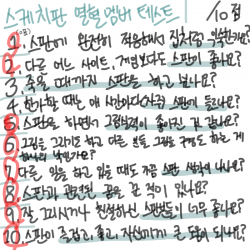 스케치판 열혈멤버 테스트 /10점
1. 스판에 완전히 적응해서 집처럼 익숙한가?
2. 다른 어느 사이트, 게임보다도 스판이 좋나요?
3. 죽을 때까지 스판을 하고 싶나요?
4. 한가할 때는 매 시간마다 자주 스판에 들르나요?
5. 스판을 하면서 그림실력이 좋아진 것 같나요?
6. 그림을 그리기도 하고 다른 분들 그림을 구경도 하는 게
하나의 낙인가요?
7. 다른 일을 하고 있을 때도 가끔 스판 생각이 나나요?
8. 스판과 관련된 꿈을 꾼 적이 있나요?
9. 잘 그리시거나 친절하신 스판분들이 너무 좋나요?
10. 스판이 즐겁고, 좋고, 자신에게 큰 도움이 되나요?